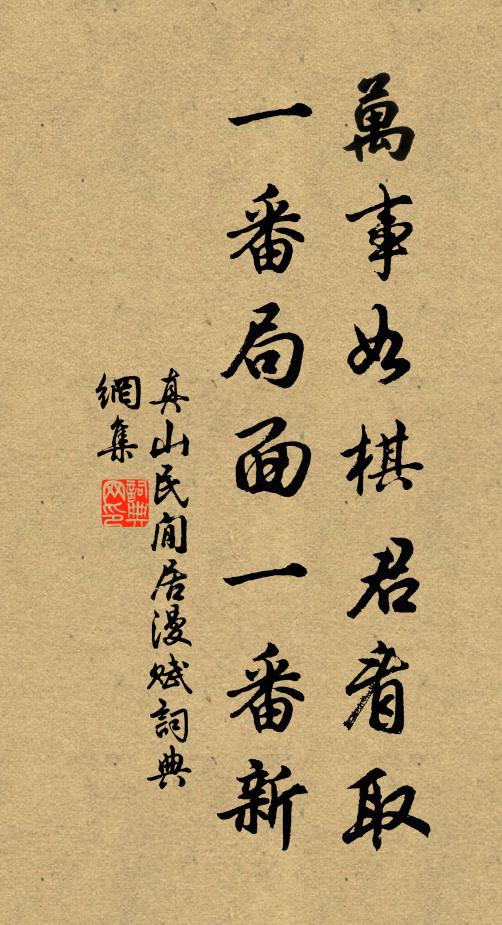 萬事如棋君看取
一番局面一番新
真山民閒居漫賦詞典
網集
詞典
网印